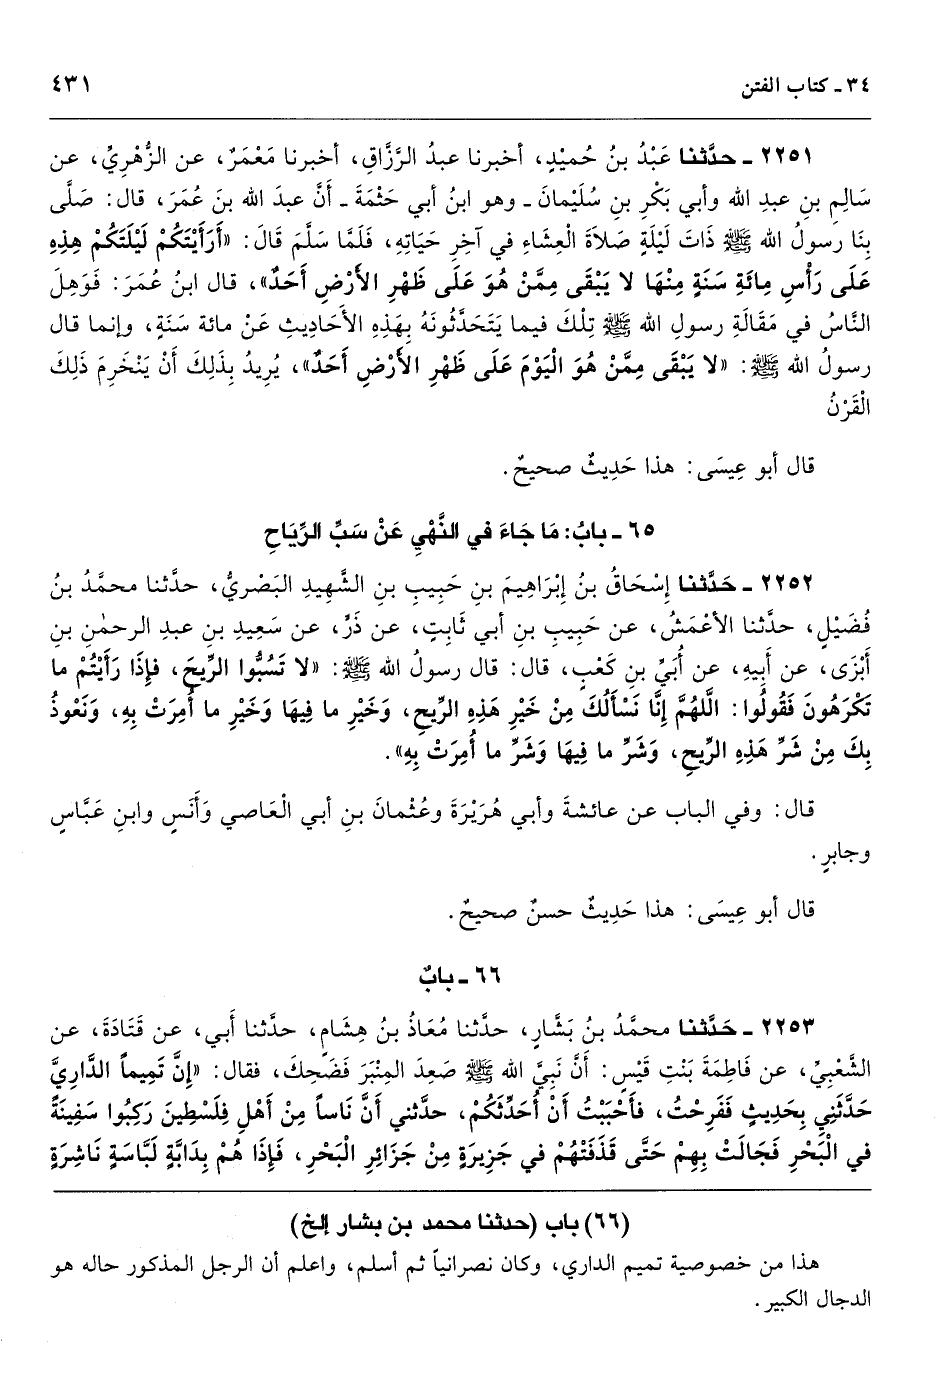 ٣٤ ـ كتاب الفتن ٤٣١
٢٢٥١ ـ حدَّثنا عَبْدُ بنُ حُميْدٍ، أخبرنا عبدُ الرَّزَّاقِ، أخبرنا مَعْمَرٌ، عن الزُّهْرِيِّ، عن
سَالِمِ بنِ عبدِ الله وأبي بَكْرِ بنِ سُلَيْمانَ ـ وهو ابنُ أبي حَثْمَةَ ـ أَنَّ عبدَ الله بنَ عُمَرَ، قال: صَلَّى
بِنَا رسولُ الله ﷺ ذَاتَ لَيْلَةٍ صَلاَةَ الْعِشَاءِ في آخِرِ حَيَاتِهِ، فَلَمَّا سَلَّمَ قَالَ: «أَرَأَيْتَكُمْ لَيْلَتَكُمْ هذِهِ
عَلَى رَأْسِ مِائَةِ سَنَةٍ مِنْهَا لا يَبْقَى مِمَّنْ هُوَ عَلَى ظَهْرِ الأَرْضِ أَحَدٌ»، قال ابنُ عُمَرَ: فَوَهِلَ
النَّاسُ في مَقَالَةِ رسولِ الله ﷺ تِلْكَ فيما يَتَحَدَّثُونَهُ بِهَذِهِ الأَحَادِيثِ عَنْ مائة سَنَةٍ، وإنما قال
رسولُ الله ﷺ: «لا يَبْقَى مِمَّنْ هُوَ الْيَوْمَ عَلَى ظَهْرِ الأَرْضِ أَحَدٌ»، يُرِيدُ بِذَلِكَ أَنْ يَنْخَرِمَ ذَلِكَ
الْقَرْنُ
قال أبو عِيسَى: هذا حَدِيثٌ صحيحٌ.
٦٥ ـ بابُ: مَا جَاءَ في النَّهْيِ عَنْ سَبِّ الرِّيَاحِ
٢٢٥٢ ـ حَدَّثنا إسْحَاقُ بنُ إبْرَاهِيمَ بنِ حَبِيبِ بنِ الشَّهِيدِ البَصْرِيُّ، حدَّثنا محمَّدُ بنُ
فُضَيْلٍ، حدَّثنا الأعْمَشُ، عن حَبِيبِ بنِ أبي ثَابِتٍ، عن ذَرٍّ، عن سَعِيدِ بنِ عبدِ الرحمٰنِ بنِ
أبْزَى، عن أَبِيهِ، عن أُبَيِّ بنِ كَعْبٍ، قال: قال رسولُ الله ﷺ: «لا تَسُبُّوا الرِّيحَ، فإذَا رَأَيْتُمْ ما
تَكْرَهُونَ فَقُولُوا: الَّلهُمَّ إنَّا نَسْأَلُكَ مِنْ خَيْرِ هَذِهِ الرِّيحِ، وَخَيْرِ ما فِيهَا وَخَيْرِ ما أُمِرَتْ بِهِ، وَنَعُوذُ
بِكَ مِنْ شَرِّ هَذِهِ الرِّيحِ، وَشَرِّ ما فِيهَا وَشَرِّ ما أُمِرَتْ بِهِ».
قال: وفي الباب عن عائشةَ وأبي هُرَيْرَةَ وعُثْمانَ بنِ أبي الْعَاصي وَأَنَسٍ وابنِ عَبَّاسٍ
وجابرٍ.
قال أبو عِيسَى: هذا حَدِيثٌ حسنٌ صحيحٌ.
٦٦ ـ بابٌ
٢٢٥٣ ـ حَدَّثنا محمَّدُ بنُ بَشَّارٍ، حدَّثنا مُعَاذُ بنُ هِشَامٍ، حدَّثنا أَبي، عن قَتَادَةَ، عن
الشَّعْبِيِّ، عن فَاطِمَةَ بَنْتِ قَيْسٍ: أَنَّ نَبِيَّ الله ﷺ صَعِدَ المِنْبَرَ فَضَحِكَ، فقال: «إِنَّ تَمِيماً الدَّارِيَّ
حَدَّثَنِي بِحَدِيثٍ فَفَرِحْتُ، فأَحْبَبْتُ أَنْ أُحَدِّثَكُمْ، حدَّثني أَنَّ نَاساً مِنْ أَهْلِ فِلَسْطِينَ رَكِبُوا سَفِينَةً
في الْبَحْرِ فَجَالَتْ بِهِمْ حَتَّى قَذَفَتْهُمْ في جَزِيرَةٍ مِنْ جَزَائِرِ الْبَحْرِ، فَإِذَا هُمْ بِدَابَّةٍ لَبَّاسَةٍ نَاشِرَةٍ
(٦٦) باب (حدثنا محمد بن بشار إلخ)
هذا من خصوصية تميم الداري، وكان نصرانياً ثم أسلم، واعلم أن الرجل المذكور حاله هو
الدجال الكبير.